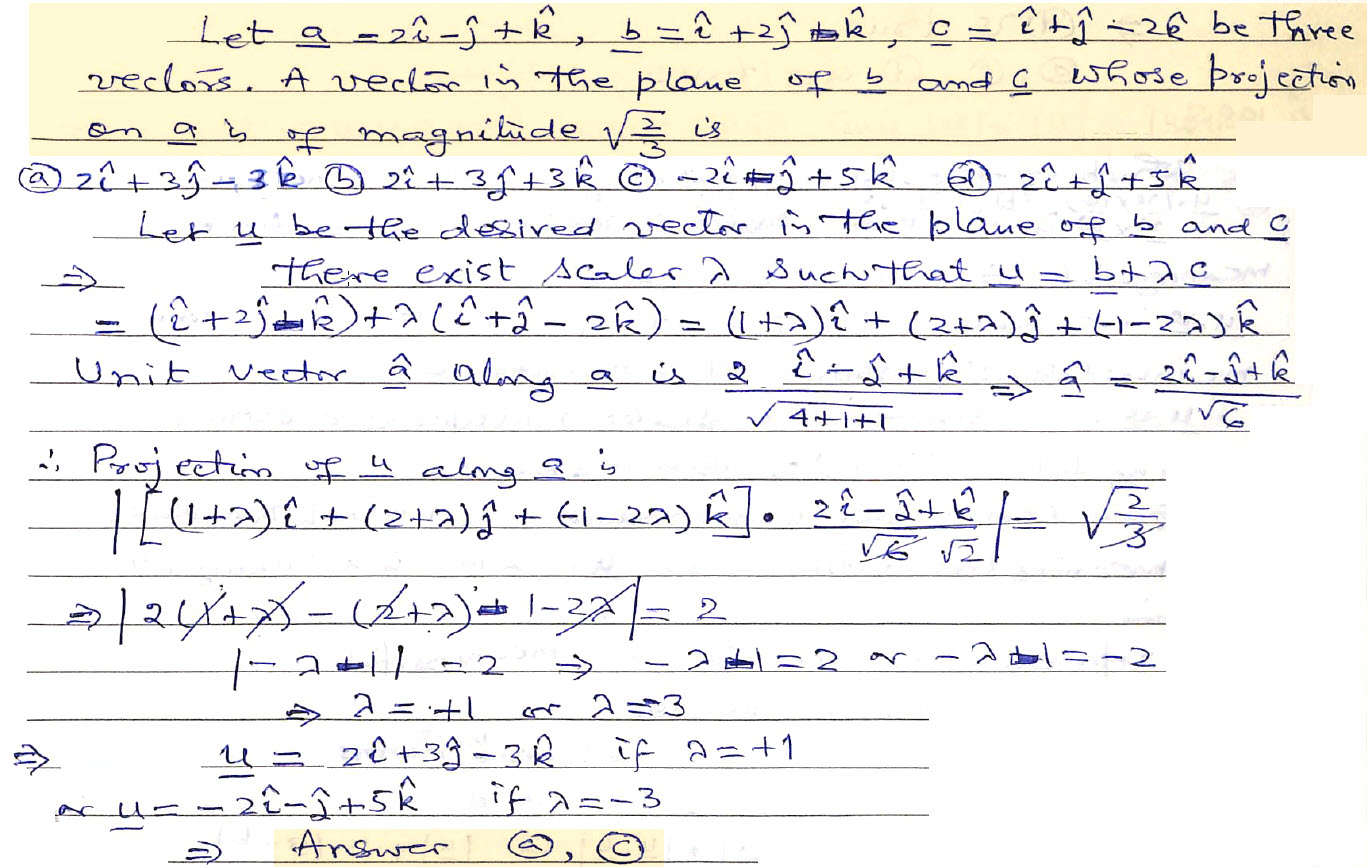 Let a = 2î - ĵ + k̂, b = î + 2ĵ - k̂, c = î + ĵ - 2k̂ be three
vectors. A vector in the plane of b and c whose projection
on a is of magnitude √(2/3) is
ⓐ 2î + 3ĵ - 3k̂ ⓑ 2î + 3ĵ + 3k̂ ⓒ -2î - ĵ + 5k̂ ⓓ 2î + ĵ + 5k̂
Let u be the desired vector in the plane of b and c
⇒ there exist scaler λ such that u = b + λc
= (î + 2ĵ - k̂) + λ(î + ĵ - 2k̂) = (1+λ)î + (2+λ)ĵ + (-1-2λ)k̂
Unit vector â along a is (2î - ĵ + k̂)/√(4+1+1) ⇒ â = (2î - ĵ + k̂)/√6
∴ Projection of u along a is
|[(1+λ)î + (2+λ)ĵ + (-1-2λ)k̂] • (2î - ĵ + k̂)/(√6 √2)| = √(2/3)
⇒ |2(1+λ) - (2+λ) - 1 - 2λ| = 2
|-λ - 1| = 2 ⇒ -λ - 1 = 2 or -λ - 1 = -2
⇒ λ = +1 or λ = -3
⇒ u = 2î + 3ĵ - 3k̂ if λ = +1
or u = -2î - ĵ + 5k̂ if λ = -3
⇒ Answer ⓐ, ⓒ